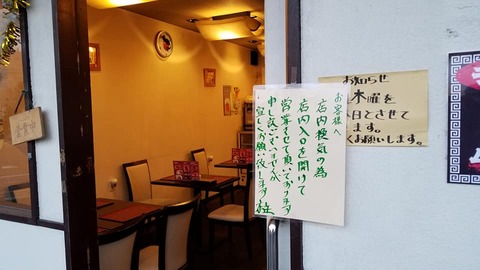 お客様へ
店内換気の為
店内入口を開けて
営業させて頂いております
申し訳ございませんが
宜しくお願い致します
お知らせ
木曜を
日とさせて
ます。
くお願いします。
営業中